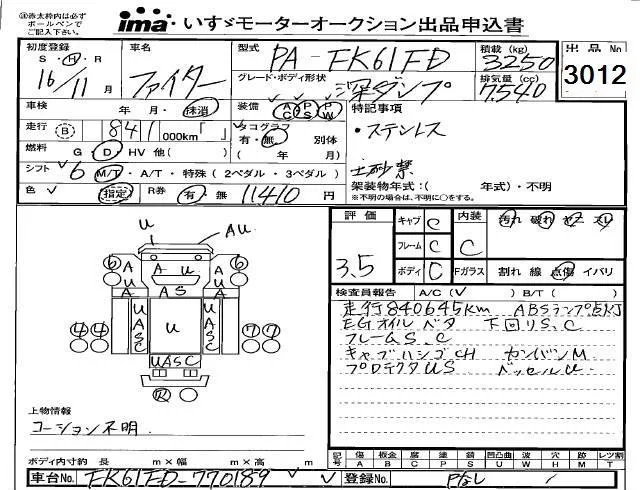 ※赤太枠内は必ず
ボールペンで
ご記入下さい。
ima いすゞモーターオークション出品申込書
初度登録
S・H・R
16/11月
車名
ファイター
型式
PA-FK61FD
積載 (kg)
3250
グレード・ボディ形状
深ダンプ
排気量 (cc)
7540
出品No
3012
車検
年 月・抹消
装備
AC PS PW
特記事項
走行 B 841 000km「 」
タコグラフ
有・無 別体
( 年 月)
・ステンレス
燃料 G・D・HV 他( )
土砂禁
シフト 6 M/T・A/T・特殊(2ペダル・3ペダル)
架装物年式:( 年式)・不明
※不明の場合は、不明に○をする。
色 指定 R券 有・無 11410 円
評価
3.5
キャブ C
内装 C
汚れ 破れ
フレーム C
ボディ C
Fガラス
割れ 線 点傷 イバリ
検査員報告 A/C(V ) B/T( )
走行840645km ABSランプ点灯
EGオイルベタ 下回りS、C
フレームS、C
キャブハシゴCH カンバンM
プロテクタUS ベッセルU
U
AU
6 A A U A 6
A A S A
U A S C
U
U A S C
4 4
7 7
UASC
上物情報
コーション不明
ボディ内寸約 長 m×幅 m×高 m
記号 傷 板金 腐 塗 錆 凹凸曲 波 穴 跡 レツ割
A B C P S U W H M T
車台No. FK61FD-770189
登録No. Pなし